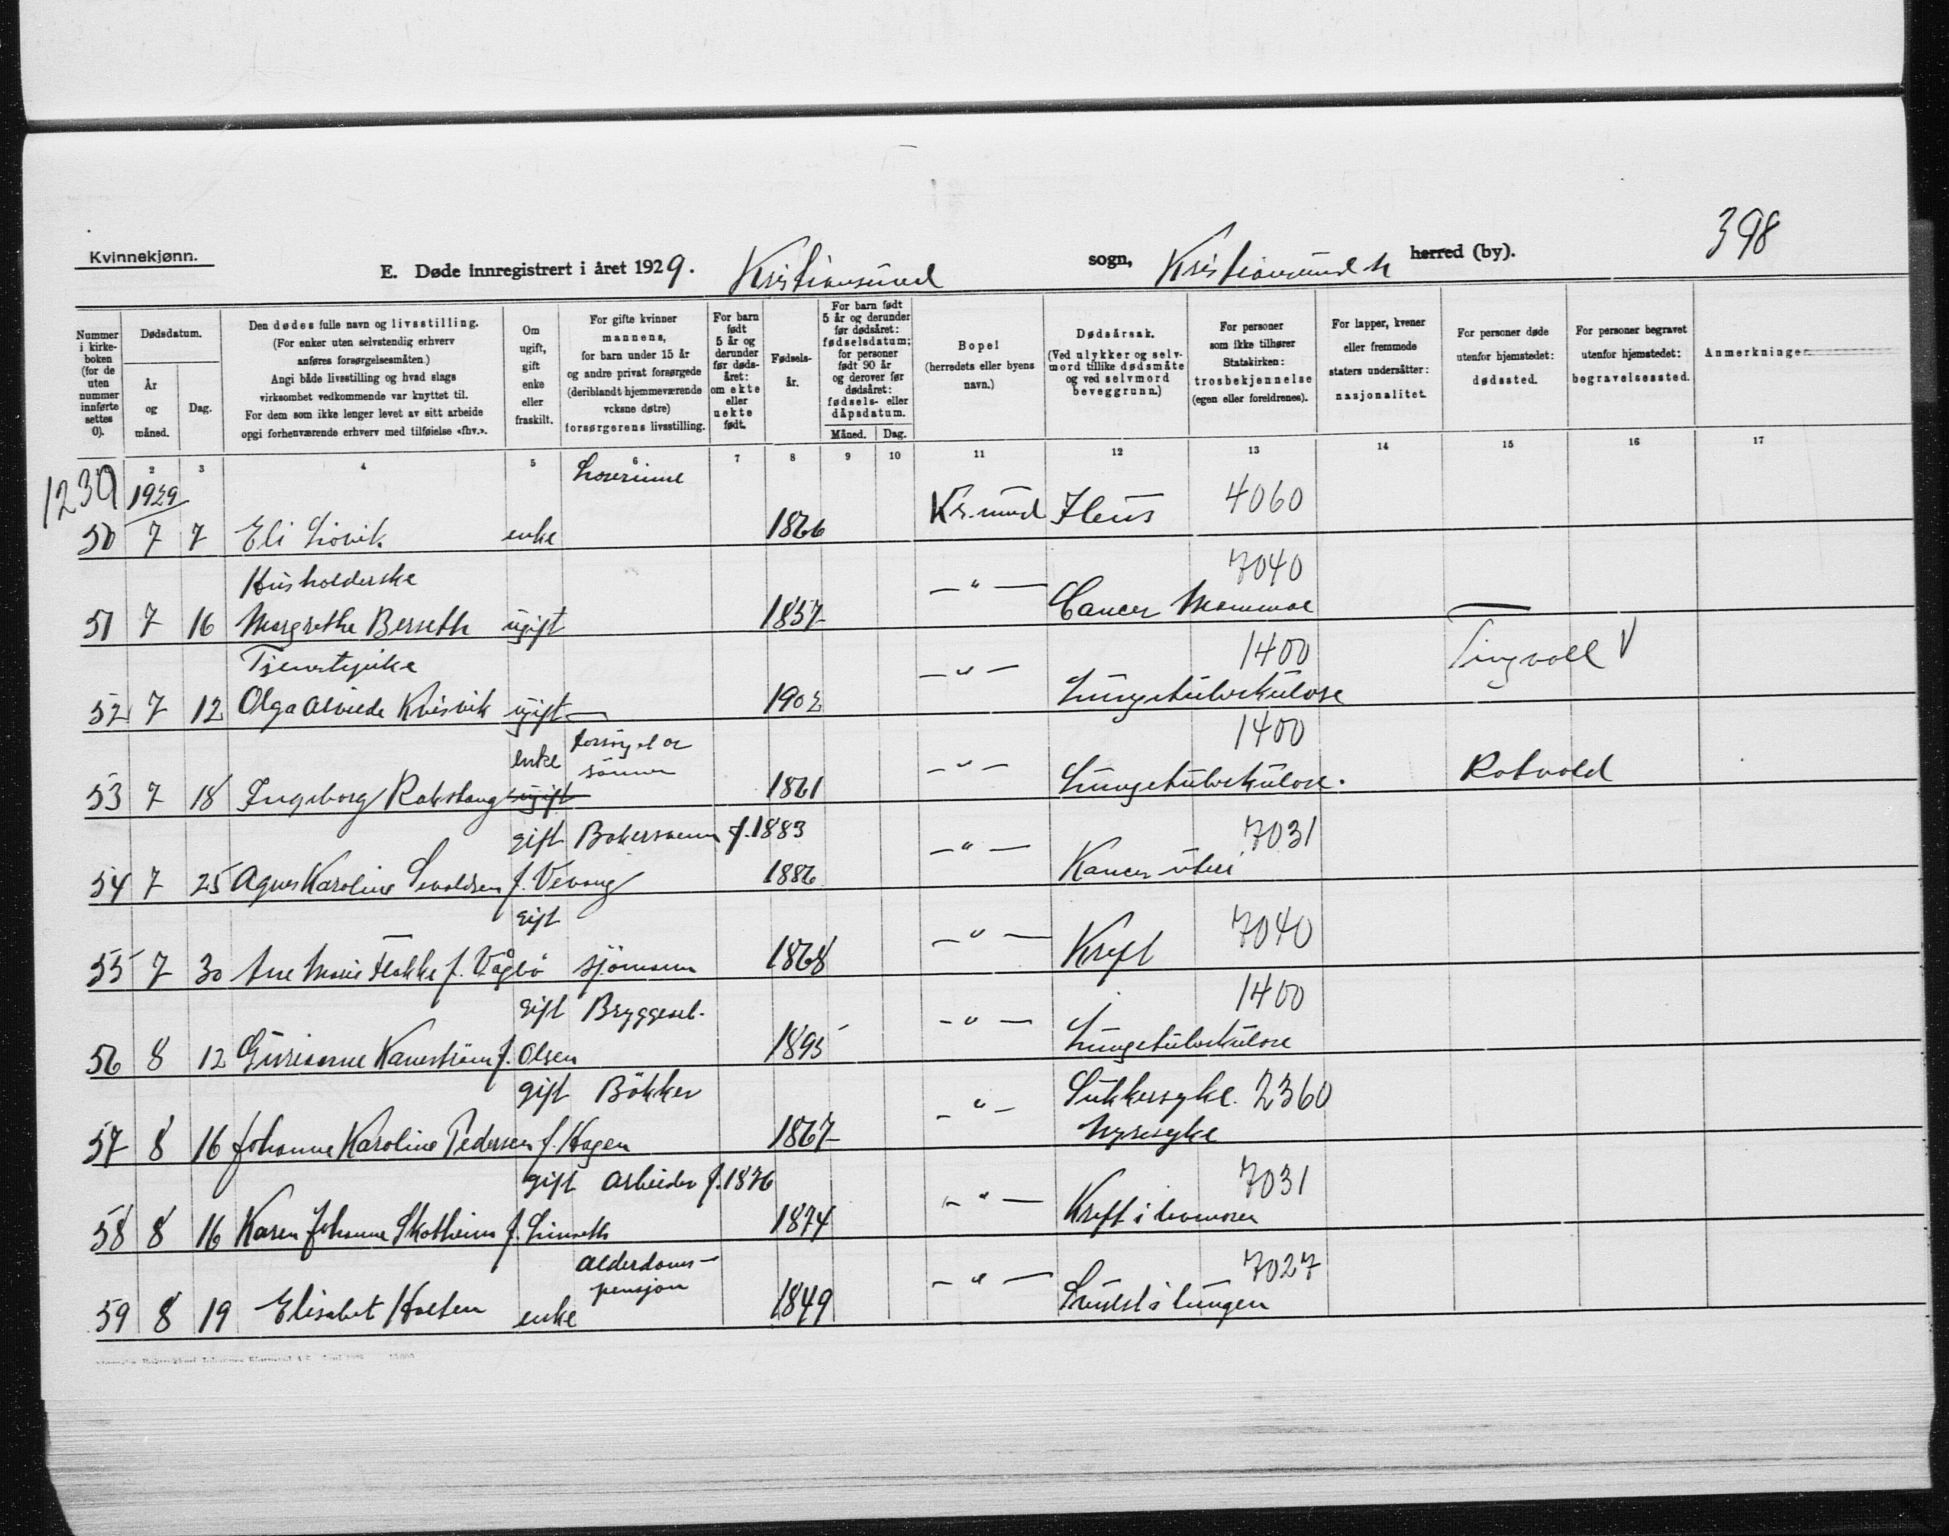 398
Kvinnekjønn.
E. Døde innregistrert i året 1929. Kristiansund sogn, Kristiansund N herred (by).
Nummer i kirkeboken (for de uten nummer innførte settes 0).
Dødsdatum.
År og måned.
Dag.
Den dødes fulle navn og livsstilling.
(For enker uten selvstendig erhverv
anføres forsørgelsesmåten.)
Angi både livsstilling og hvad slags
virksomhet vedkommende var knyttet til.
For dem som ikke lenger levet av sitt arbeide
opgi forhenværende erhverv med tilføielse «fhv.».
Om ugift, gift enke eller fraskilt.
For gifte kvinner
mannens,
for barn under 15 år
og andre privat forsørgede
(deriblandt hjemmeværende
voksne døtre)
forsørgerens livsstilling.
For barn født 5 år og derunder før dødsåret: om ekte eller uekte født.
Fødselsår.
For barn født
5 år og derunder
før dødsåret:
fødselsdatum;
for personer
født 90 år
og derover før
dødsåret:
fødsels- eller
dåpsdatum.
Måned. Dag.
Bopel
(herredets eller byens
navn.)
Dødsårsak.
(Ved ulykker og selvmord tillike dødsmåte
og ved selvmord
beveggrunn.)
For personer
som ikke tilhører
Statskirken:
trosbekjennelse
(egen eller foreldrenes).
For lapper, kvener
eller fremmede
staters undersåtter:
nasjonalitet.
For personer døde
utenfor hjemstedet:
dødssted.
For personer begravet
utenfor hjemstedet:
begravelsessted.
Anmerkninger
2 3 4 5 6 7 8 9 10 11 12 13 14 15 16 17
1239 1929 4060
50 7 7 Eli enke 1866 Kr.sund Ileus
Husholderske 7040
51 7 16 Margrethe Berseth ugift 1857 — " — Cancer Mammae
1400
52 7 12 Olga Kvisvik ugift — 1902 — " — Lungetuberkulose Tingvoll V
enke forsørget av sønner 1400
53 7 18 Ingeborg ugift 1861 — " — Lungetuberkulose. Rotvold
gift f. 1883 7031
54 7 25 Agnes Karoline Sevaldsen f. Vevang 1886 — " — Kancer uteri
gift 7040
55 7 30 Ane Marie Flakke f. Vågbö sjömann 1868 — " — Kreft
gift Bryggearb. 1400
56 8 12 f. Olsen 1895 — " — Lungetuberkulose
gift Bökker Sukkersyke. 2360
57 8 16 Johanne Karoline Pedersen f. Hagen 1867 — " — Nyresyke
gift Arbeider f. 1876 7031
58 8 16 Karen Johanne Skotheim f. 1874 — " — Kreft i
Alderdoms-
pensjon 7027
59 8 19 Elisabet Holten enke 1849 — " — Svulst i lungen